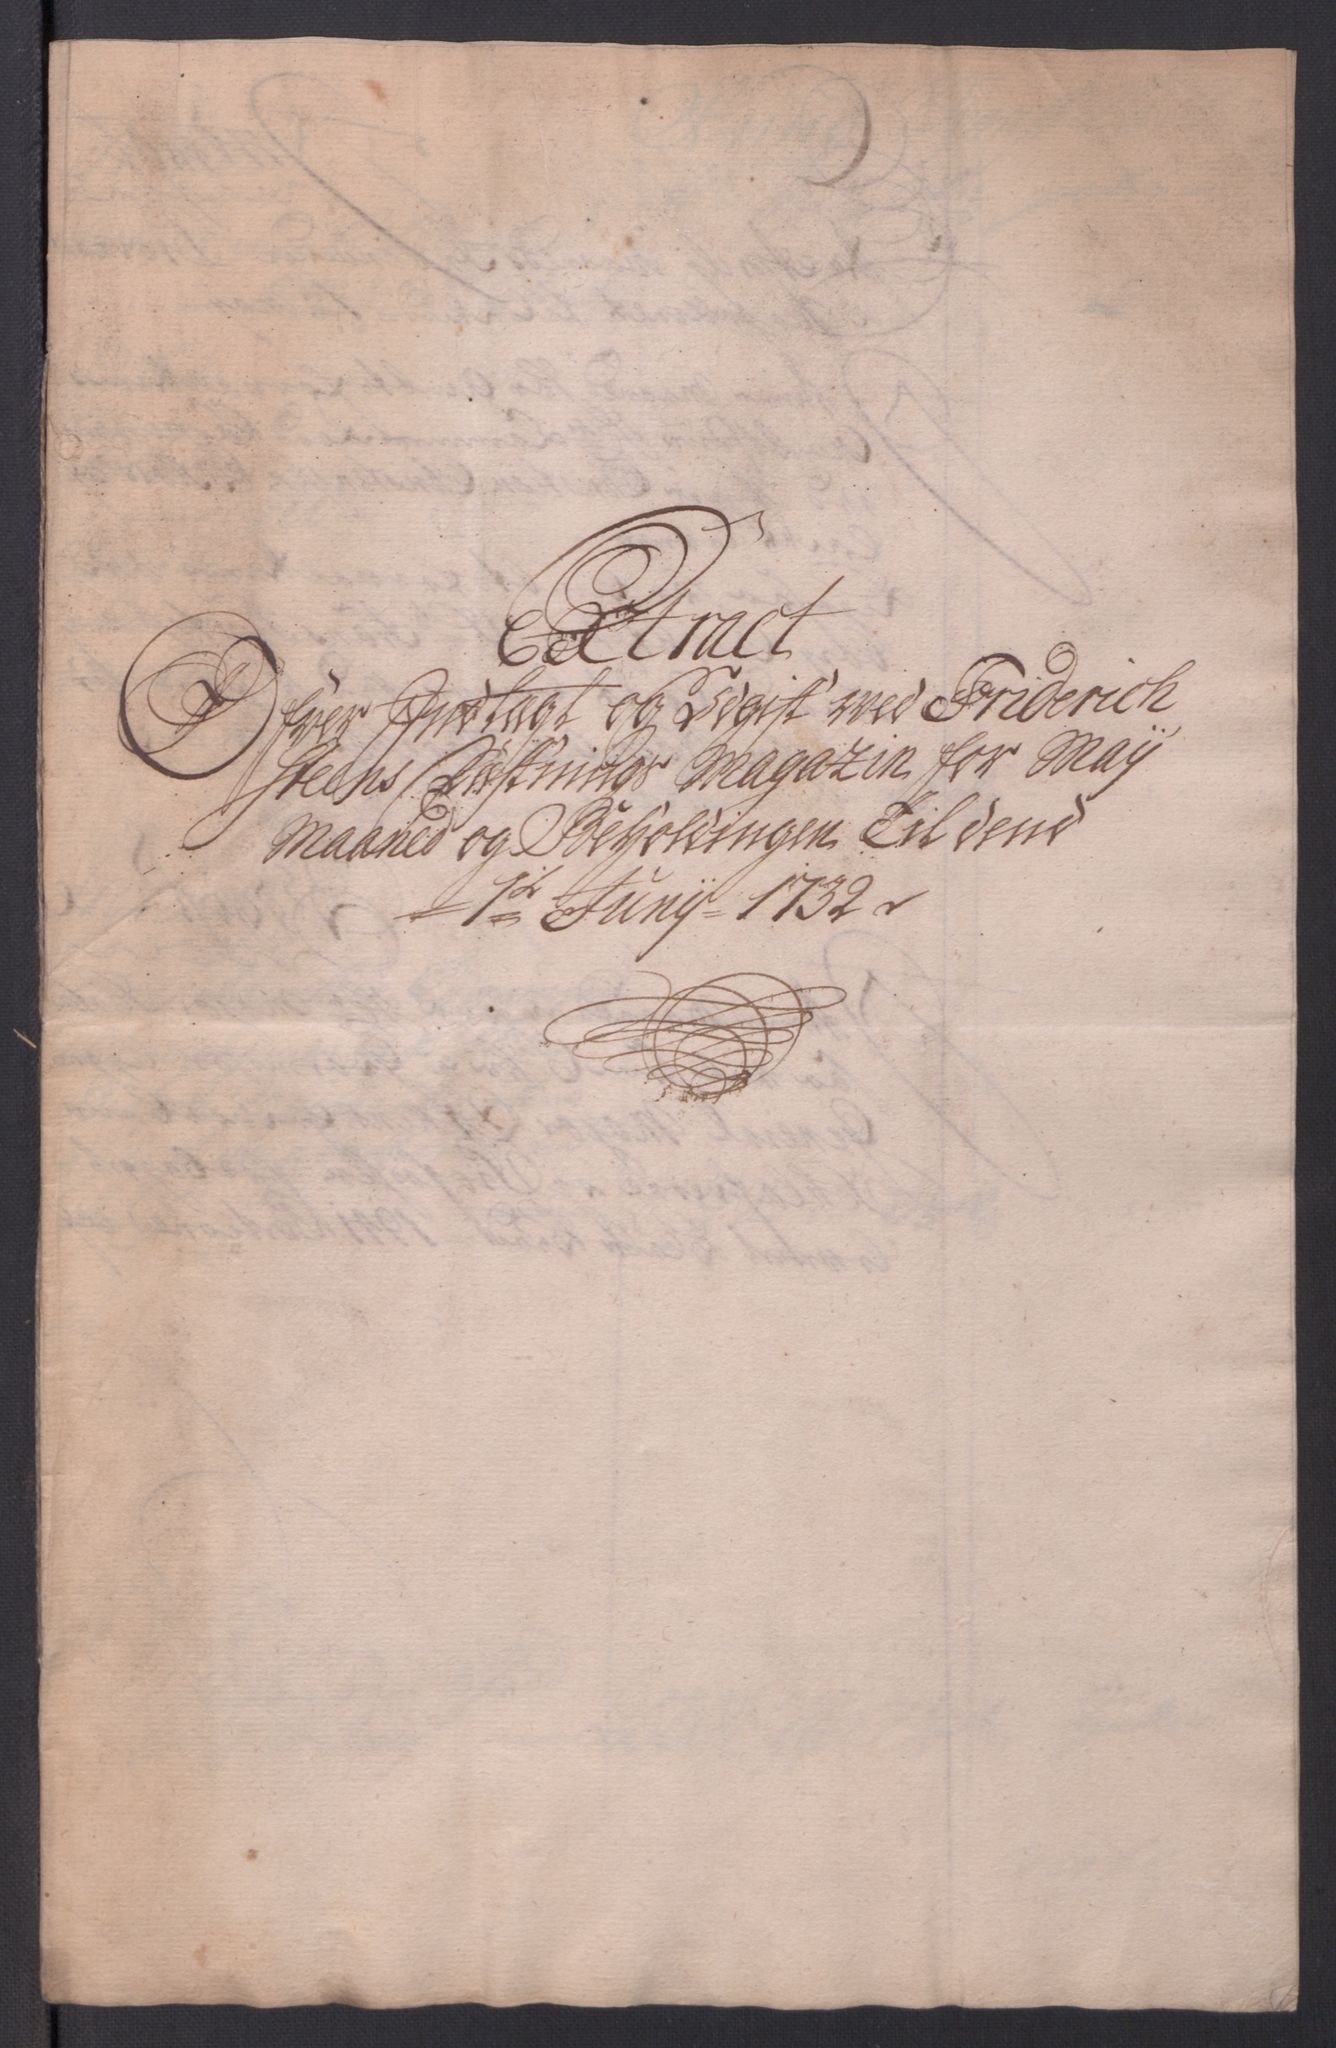 Extract
Ofver Indtagt og Udgift wed Friderich
steens Fæstnings Magazin for Maÿ
Maaned og Beholdingen Til dend
1te Junÿ 1732